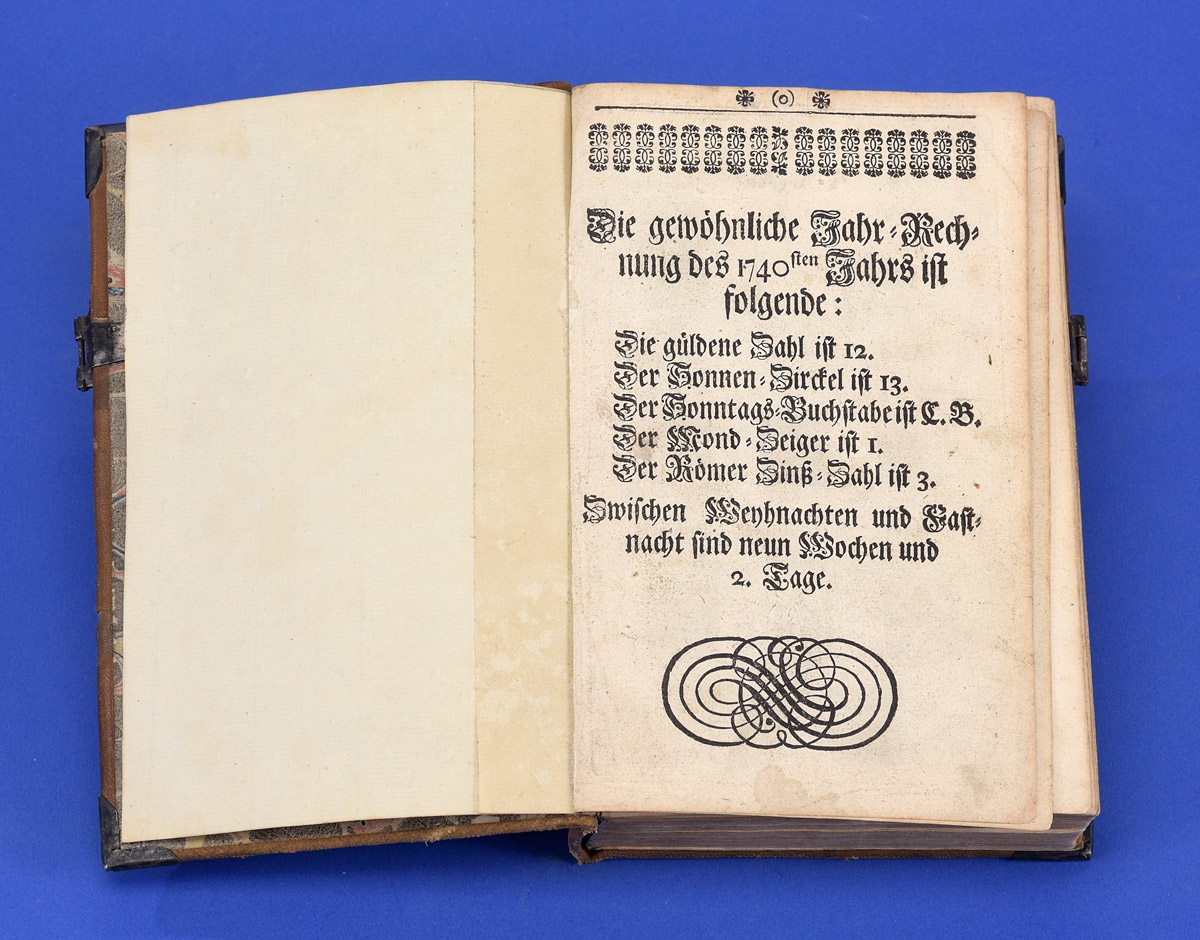 (o)
Die gewöhnliche Jahr-Rech-
nung des 1740sten Jahrs ist
folgende:
Die güldene Zahl ist 12.
Der Sonnen-Zirckel ist 13.
Der Sonntags-Buchstabe ist C. B.
Der Mond-Zeiger ist 1.
Der Römer Zinß-Zahl ist 3.
Zwischen Weyhnachten und Fast-
nacht sind neun Wochen und
2. Tage.